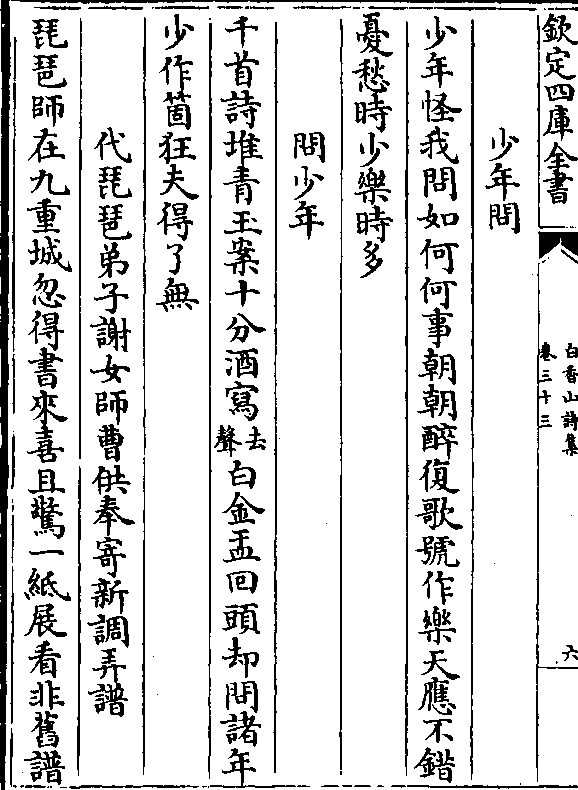 欽定四庫全書
白香山詩集
卷三十三
六
少年問
少年怪我問如何何事朝朝醉復歌號作樂天應不錯
憂愁時少樂時多
問少年
千首詩堆青玉案十分酒寫去聲白金盂回頭却問諸年
少作箇狂夫得了無
代琵琶弟子謝女師曹供奉寄新調弄譜
琵琶師在九重城忽得書來喜且驚一紙展看非舊譜